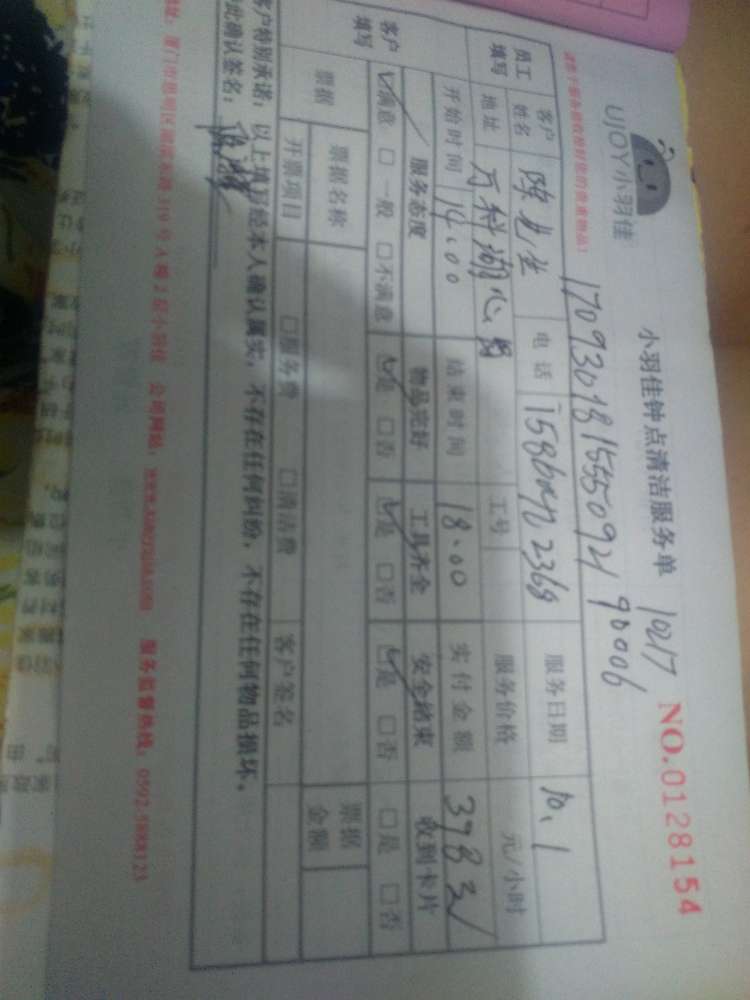 UJOY小羽佳
小羽佳钟点清洁服务单
10217
NO.0128154
请您于服务前收拾好您的贵重物品！
90006
员工填写
客户姓名 陈先生 电话 服务日期 10.1
地址 万科湖心岛 工号 服务价格 元/小时
开始时间 14:00 结束时间 18:00 实付金额
客户填写
服务态度 物品完好 工具齐全 安全结束 收到卡片
☑满意 □一般 □不满意 ☑是 □否 ☑是 □否 ☑是 □否 □是 □否
票据 票据名称 票据金额
开票项目 □服务费 □清洁费 客户签名
客户特别承诺：以上填写经本人确认属实，不存在任何纠纷，不存在任何物品损坏。
此确认签名：
地址：厦门市思明区 319号 2层小羽佳 公司网站： 服务监督热线：